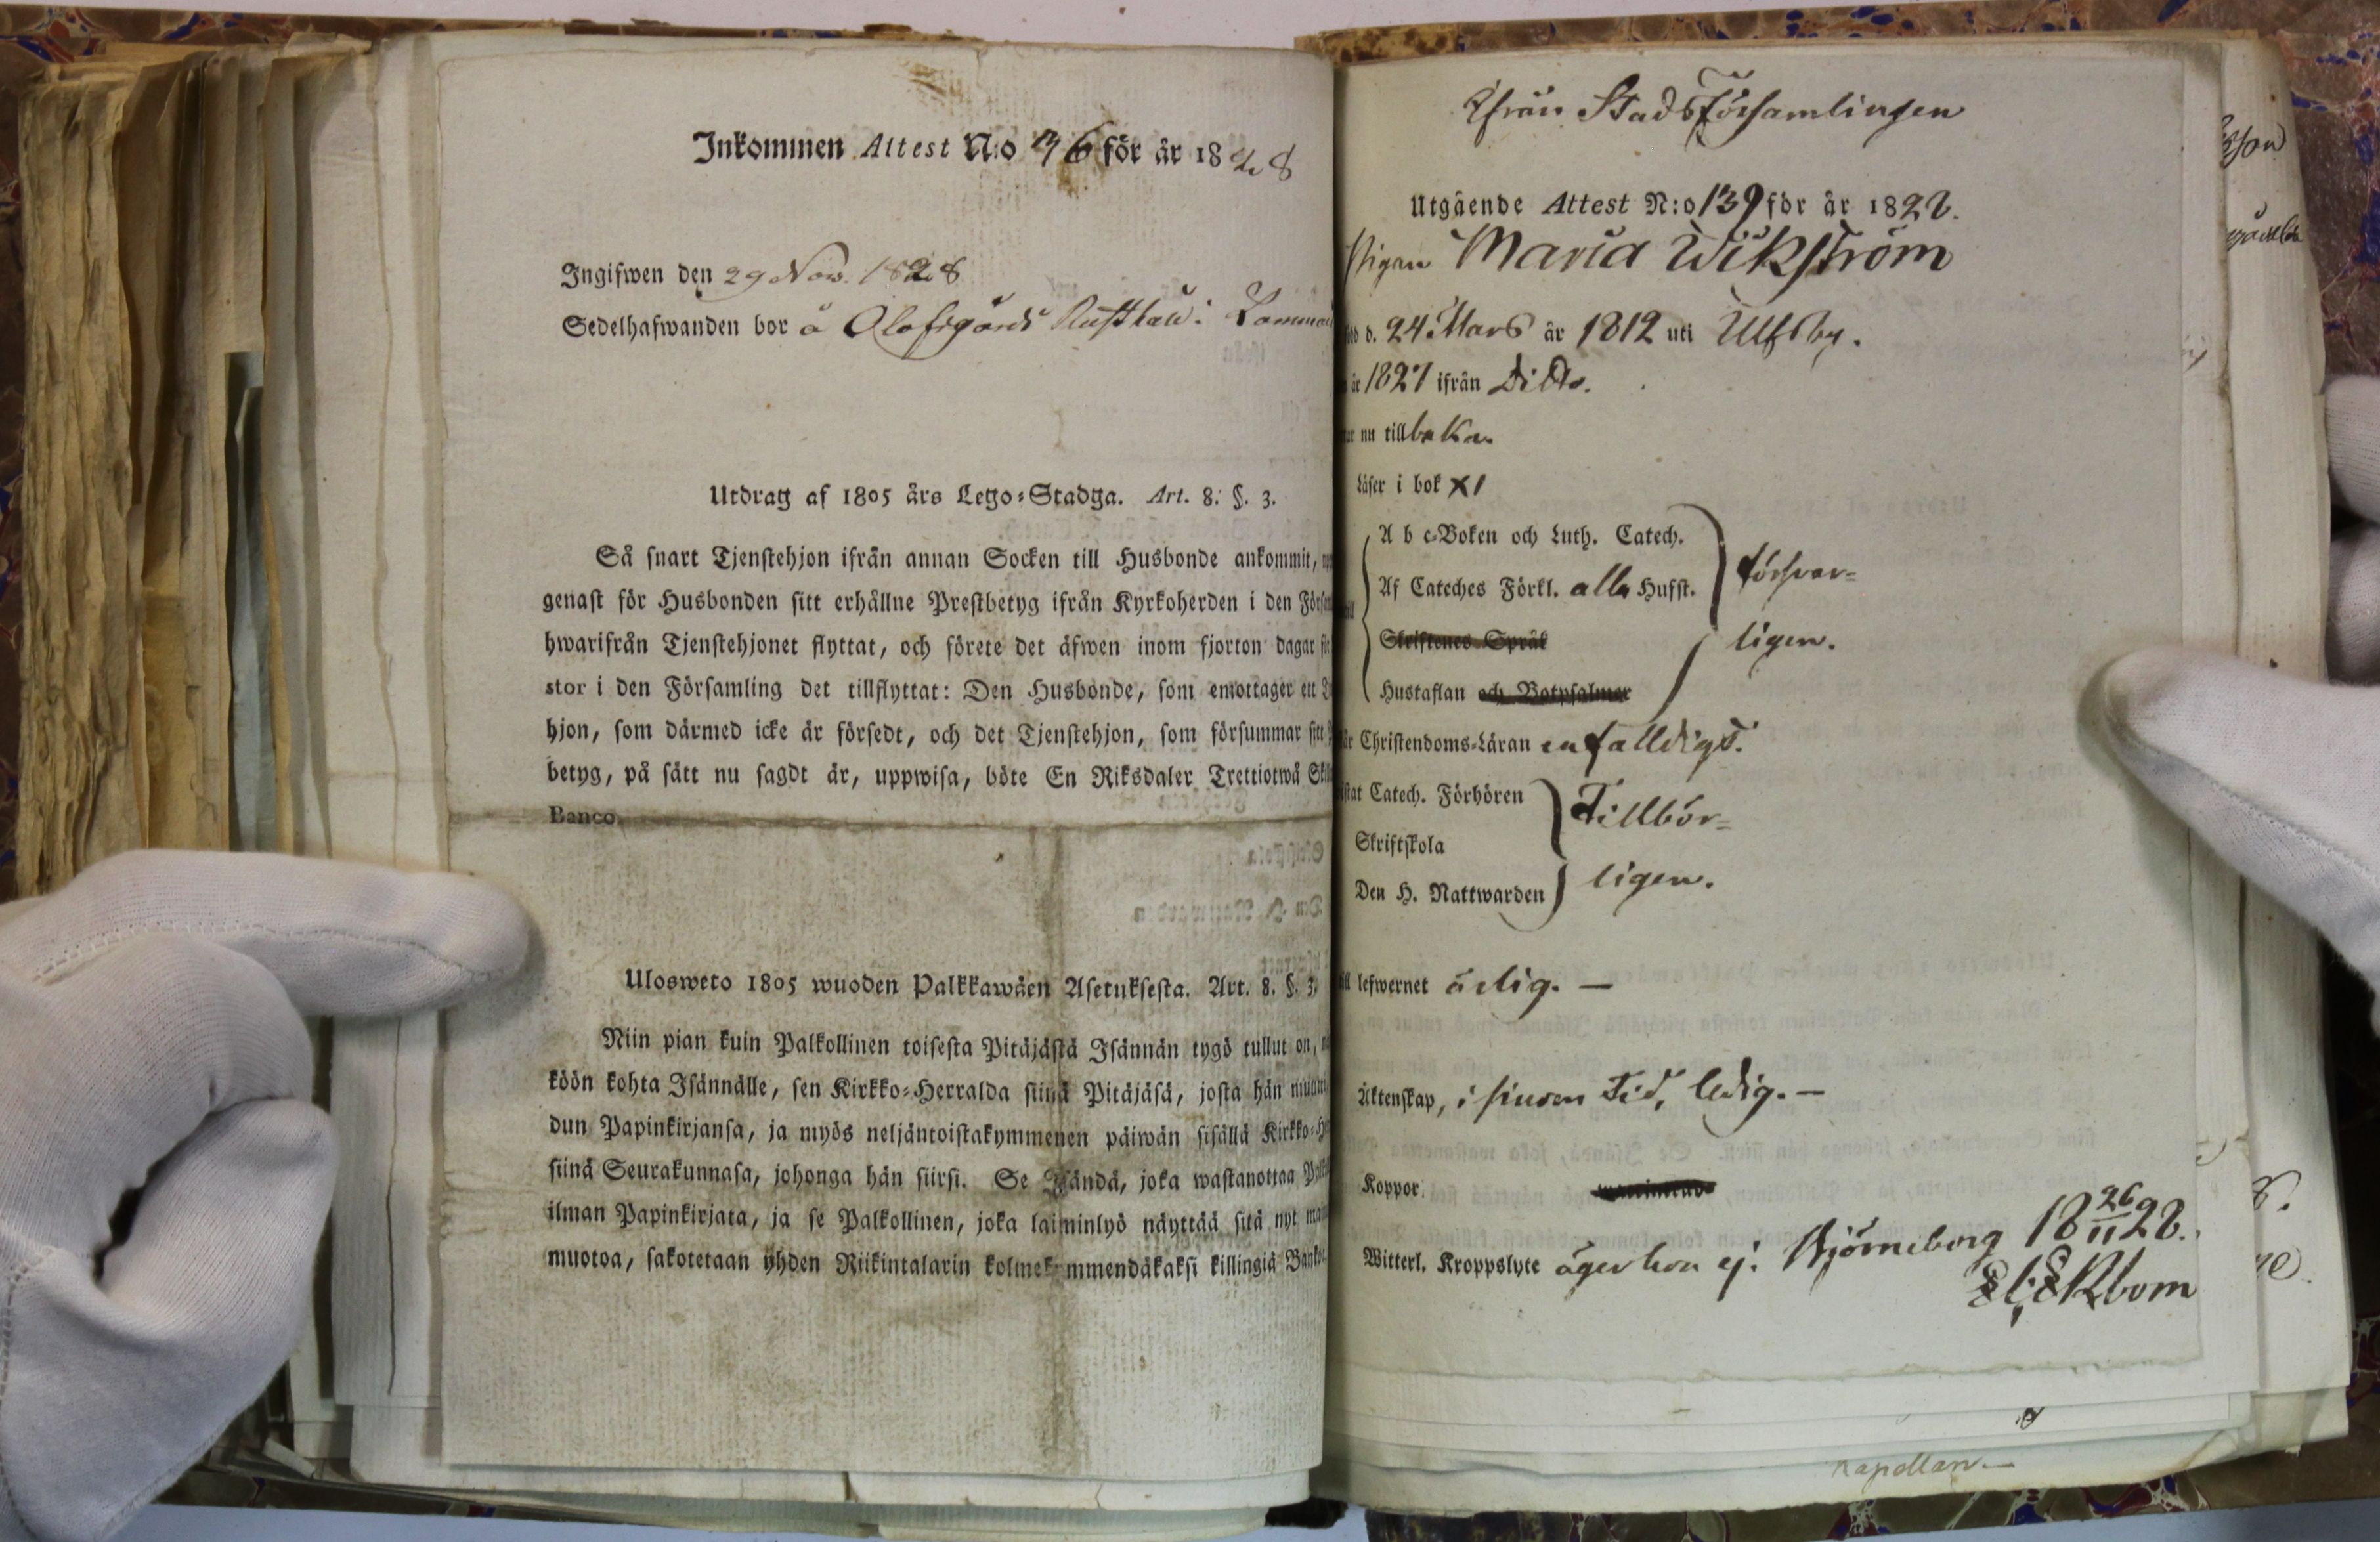 Inkommen Attest N:o 36 för år 1828
Ingifwen den 29 Nov. 1828
Sedelhafwanden bor å Olofsgårds Rusthåll i
Utdrag af 1805 års Lego-Stadga. Art. 8. §. 3.
Så snart Tjenstehjon ifrån annan Socken till Husbonde ankommit,
genast för Husbonden sitt erhållne Prestbetyg ifrån Kyrkoherden i den
hwarifrån Tjenstehjonet flyttat, och förete det äfwen inom fjorton dagar
stor i den Församling det tillflyttat: Den Husbonde, som emottager ett
hjon, som därmed icke är försedt, och det Tjenstehjon, som försummar sitt
betyg, på sätt nu sagdt är, uppwisa, böte En Riksdaler Trettiotwå
Banco.
Ulosweto 1805 wuoden Palkkawäen Asetuksesta. Art. 8. §. 3.
Niin pian kuin Palkollinen toisesta Pitäjästä Isännän tygö tullut on,
köön kohta Isännälle, sen Kirkko-Herralda siinä Pitäjäsä, josta hän
dun Papinkirjansa, ja myös neljäntoistakymmenen päiwän sisällä Kirkko-
siinä Seurakunnasa, johonga hän siirsi. Se Isändä, joka wastanottaa
ilman Papinkirjata, ja se Palkollinen, joka laiminlyö näyttää sitä nyt
muotoa, sakotetaan yhden Riikintalarin kolmekymmendäkaksi killingiä
Ifrån Stads Församlingen
Utgående Attest N:o 139 för år 1828.
Pigan Maria Wikström
d. 24 Mars år 1812 uti Ulfsby.
år 1827 ifrån Dito.
nu tillbaka
Läser i bok XI
A b c-Boken och Luth. Catech.
Af Cateches Förkl. alla Husst.
försvar=
Skriftenes Språk
ligen.
Hustaflan och Botpsalmer
Christendoms-Läran enfalldigt.
Catech. Förhören
Tillbör=
Skriftskola
Den H. Nattwarden
ligen.
lefwernet ärlig. —
Äktenskap, i sinom tid, ledig. —
Koppor
Witterl. Kroppslyte äger hon ej. Björneborg 18 26/11 28.
Ekbom
Kapellan —